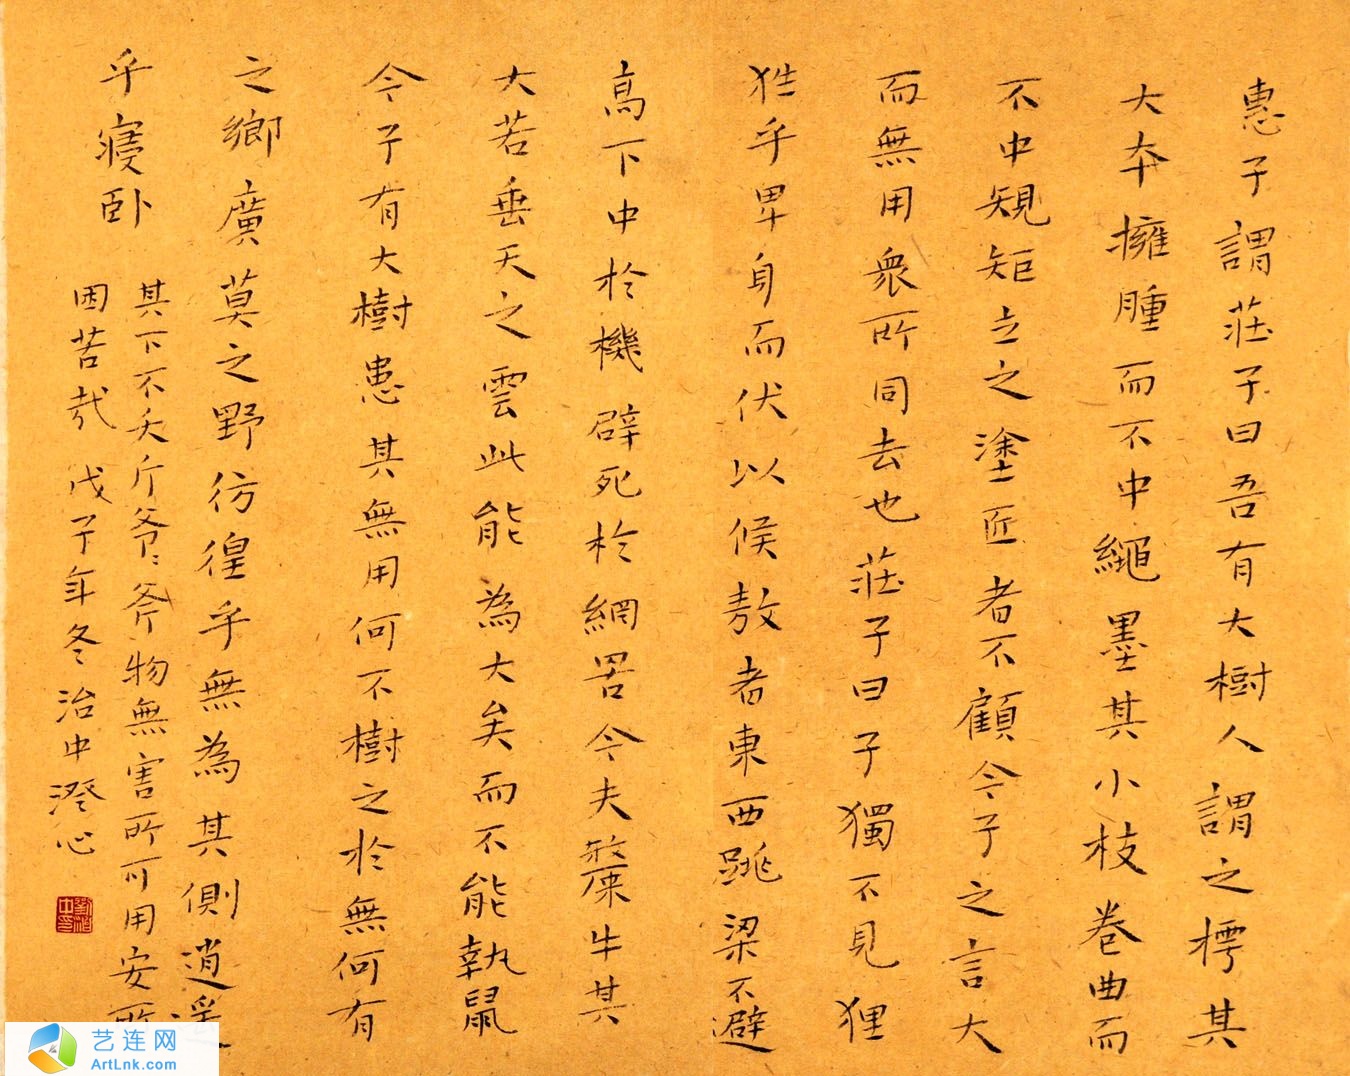 惠子謂莊子曰吾有大樹人謂之樗其
大本擁腫而不中繩墨其小枝卷曲而
不中規矩立之塗匠者不顧今子之言大
而無用衆所同去也莊子曰子獨不見狸
狌乎卑身而伏以候敖者東西跳梁不避
高下中於機辟死於網罟今夫斄牛其
大若垂天之雲此能為大矣而不能執鼠
今子有大樹患其無用何不樹之於無何有
之鄉廣莫之野彷徨乎無為其側逍遙
乎寢卧
其下不夭斤斧物無害所可用安所
困苦哉 戊子年冬治中澄心
艺连网
ArtLnk.com